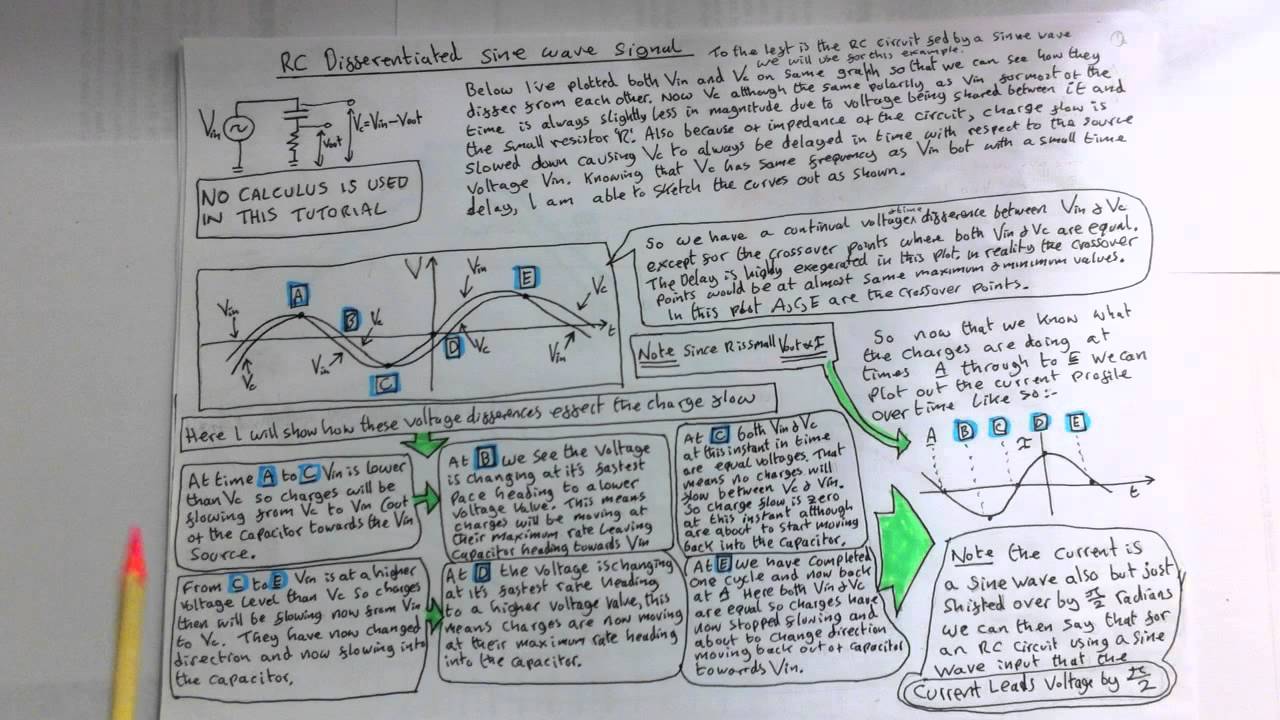 RC Differentiated Sine wave Signal
To the left is the RC circuit fed by a sinwe wave
we will use for this example.
Below I've plotted both Vin and Vc on same graph so that we can see how they
differ from each other. Now Vc although the same polarity as Vin for most of the
time is always slightly less in magnitude due to voltage being shared between it and
the small resistor 'R'. Also because of impedance of the circuit, charge flow is
slowed down causing Vc to always be delayed in time with respect to the source
voltage Vin. Knowing that Vc has same frequency as Vin but with a small time
delay, I am able to sketch the curves out as shown.
Vin
Vc=Vin-Vout
Vout
NO CALCULUS IS USED
IN THIS TUTORIAL
So we have a continual voltage & time difference between Vin & Vc
except for the crossover points where both Vin & Vc are equal.
The Delay is highly exegerated in this plot. In reality the crossover
points would be at almost same maximum & minimum values.
In this plot A,C,E are the crossover points.
V
Vin
E
Vc
A
B
Vc
Vin
t
Vin
D
Vc
Vin
Vc
C
Note Since R is small Vout ∝ I
So now that we know what
the charges are doing at
times A through to E we can
plot out the current profile
over time like so:-
A B C D E
I
t
Here I will show how these voltage differences effect the charge flow
At time A to C Vin is lower
than Vc so charges will be
flowing from Vc to Vin (out
of the capacitor towards the Vin
source.
At B we see the Voltage
is changing at it's fastest
pace heading to a lower
voltage value. This means
charges will be moving at
their maximum rate leaving
Capacitor heading towards Vin
At C both Vin & Vc
at this instant in time
are equal voltages. That
means no charges will
flow between Vc & Vin.
So charge flow is zero
at this instant although
are about to start moving
back into the capacitor.
From C to E Vin is at a higher
voltage level than Vc so charges
then will be flowing now from Vin
to Vc. They have now changed
direction and now flowing into
the capacitor.
At D the voltage is changing
at it's fastest rate heading
to a higher voltage value, this
means charges are now moving
at their maximum rate heading
into the capacitor.
At E we have completed
one cycle and now back
at A. Here both Vin & Vc
are equal so charges have
now stopped flowing and
about to change direction
moving back out of capacitor
towards Vin.
Note the current is
a sine wave also but just
shifted over by π/2 radians
we can then say that for
an RC circuit using a sine
wave input that the
Current Leads Voltage by π/2